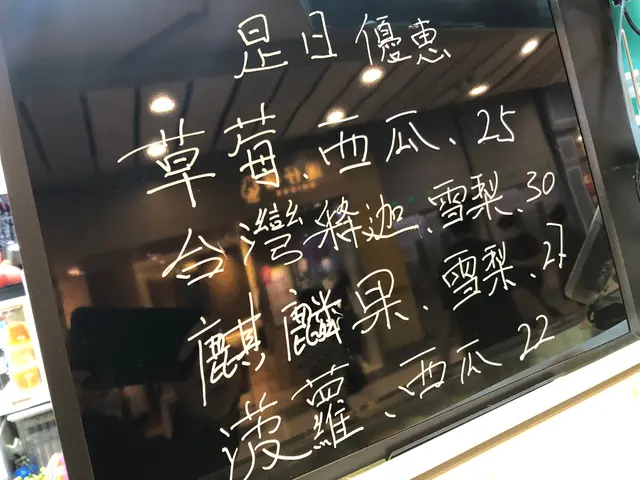 是日優惠
草莓、西瓜、25
台灣釋迦、雪梨、30
麒麟果、雪梨、27
菠蘿、西瓜 22